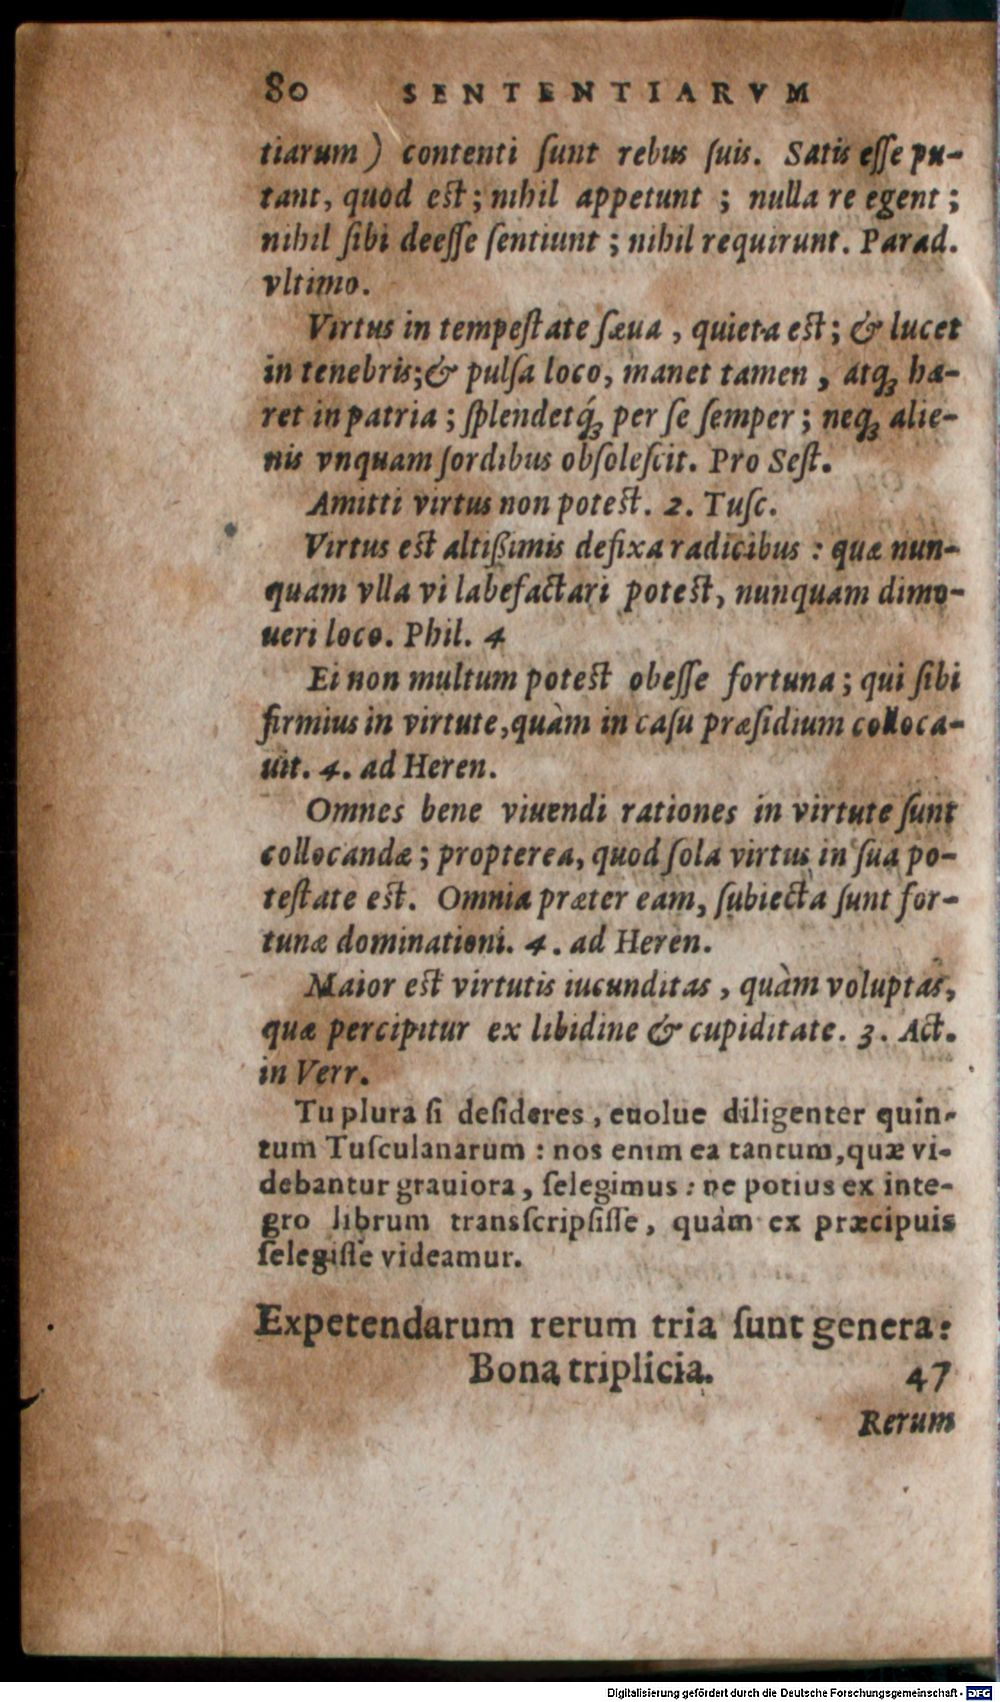 80 SENTENTIARVM
tiarum) contenti ſunt rebus ſuis. Satis eſſe pu-
tant, quod est; nihil appetunt ; nulla re egent ;
nihil ſibi deeſſe ſentiunt ; nihil requirunt. Parad.
vltimo.
Virtus in tempeſtate ſæua , quieta est; & lucet
in tenebris;& pulſa loco, manet tamen , atq́ꝫ hæ-
ret in patria ; ſplendetq́ꝫ per ſe ſemper ; neqꝫ alie-
nis vnquam ſordibus obſoleſcit. Pro Seſt.
Amitti virtus non potest. 2. Tuſc.
Virtus est altißimis defixa radicibus : quæ nun-
quam vlla vi labefactari potest, nunquam dimo-
ueri loco. Phil. 4
Ei non multum potest obeſſe fortuna ; qui ſibi
firmius in virtute,quàm in caſu præſidium colloca-
uit. 4. ad Heren.
Omnes bene viuendi rationes in virtute ſunt
collocandæ ; propterea, quod ſola virtus in ſua po-
teſtate est. Omnia præter eam, ſubiecta ſunt for-
tunæ dominationi. 4. ad Heren.
Maior est virtutis iucunditas , quàm voluptas,
quæ percipitur ex libidine & cupiditate. 3. Act.
in Verr.
Tu plura ſi deſideres , euolue diligenter quin-
tum Tuſculanarum : nos enim ea tantum,quæ vi-
debantur grauiora , ſelegimus : ne potius ex inte-
gro librum transſcripſiſſe, quàm ex præcipuis
ſelegiſſe videamur.
Expetendarum rerum tria ſunt genera:
Bona triplicia. 47
Rerum
Digitalisierung gefördert durch die Deutsche Forschungsgemeinschaft - DFG